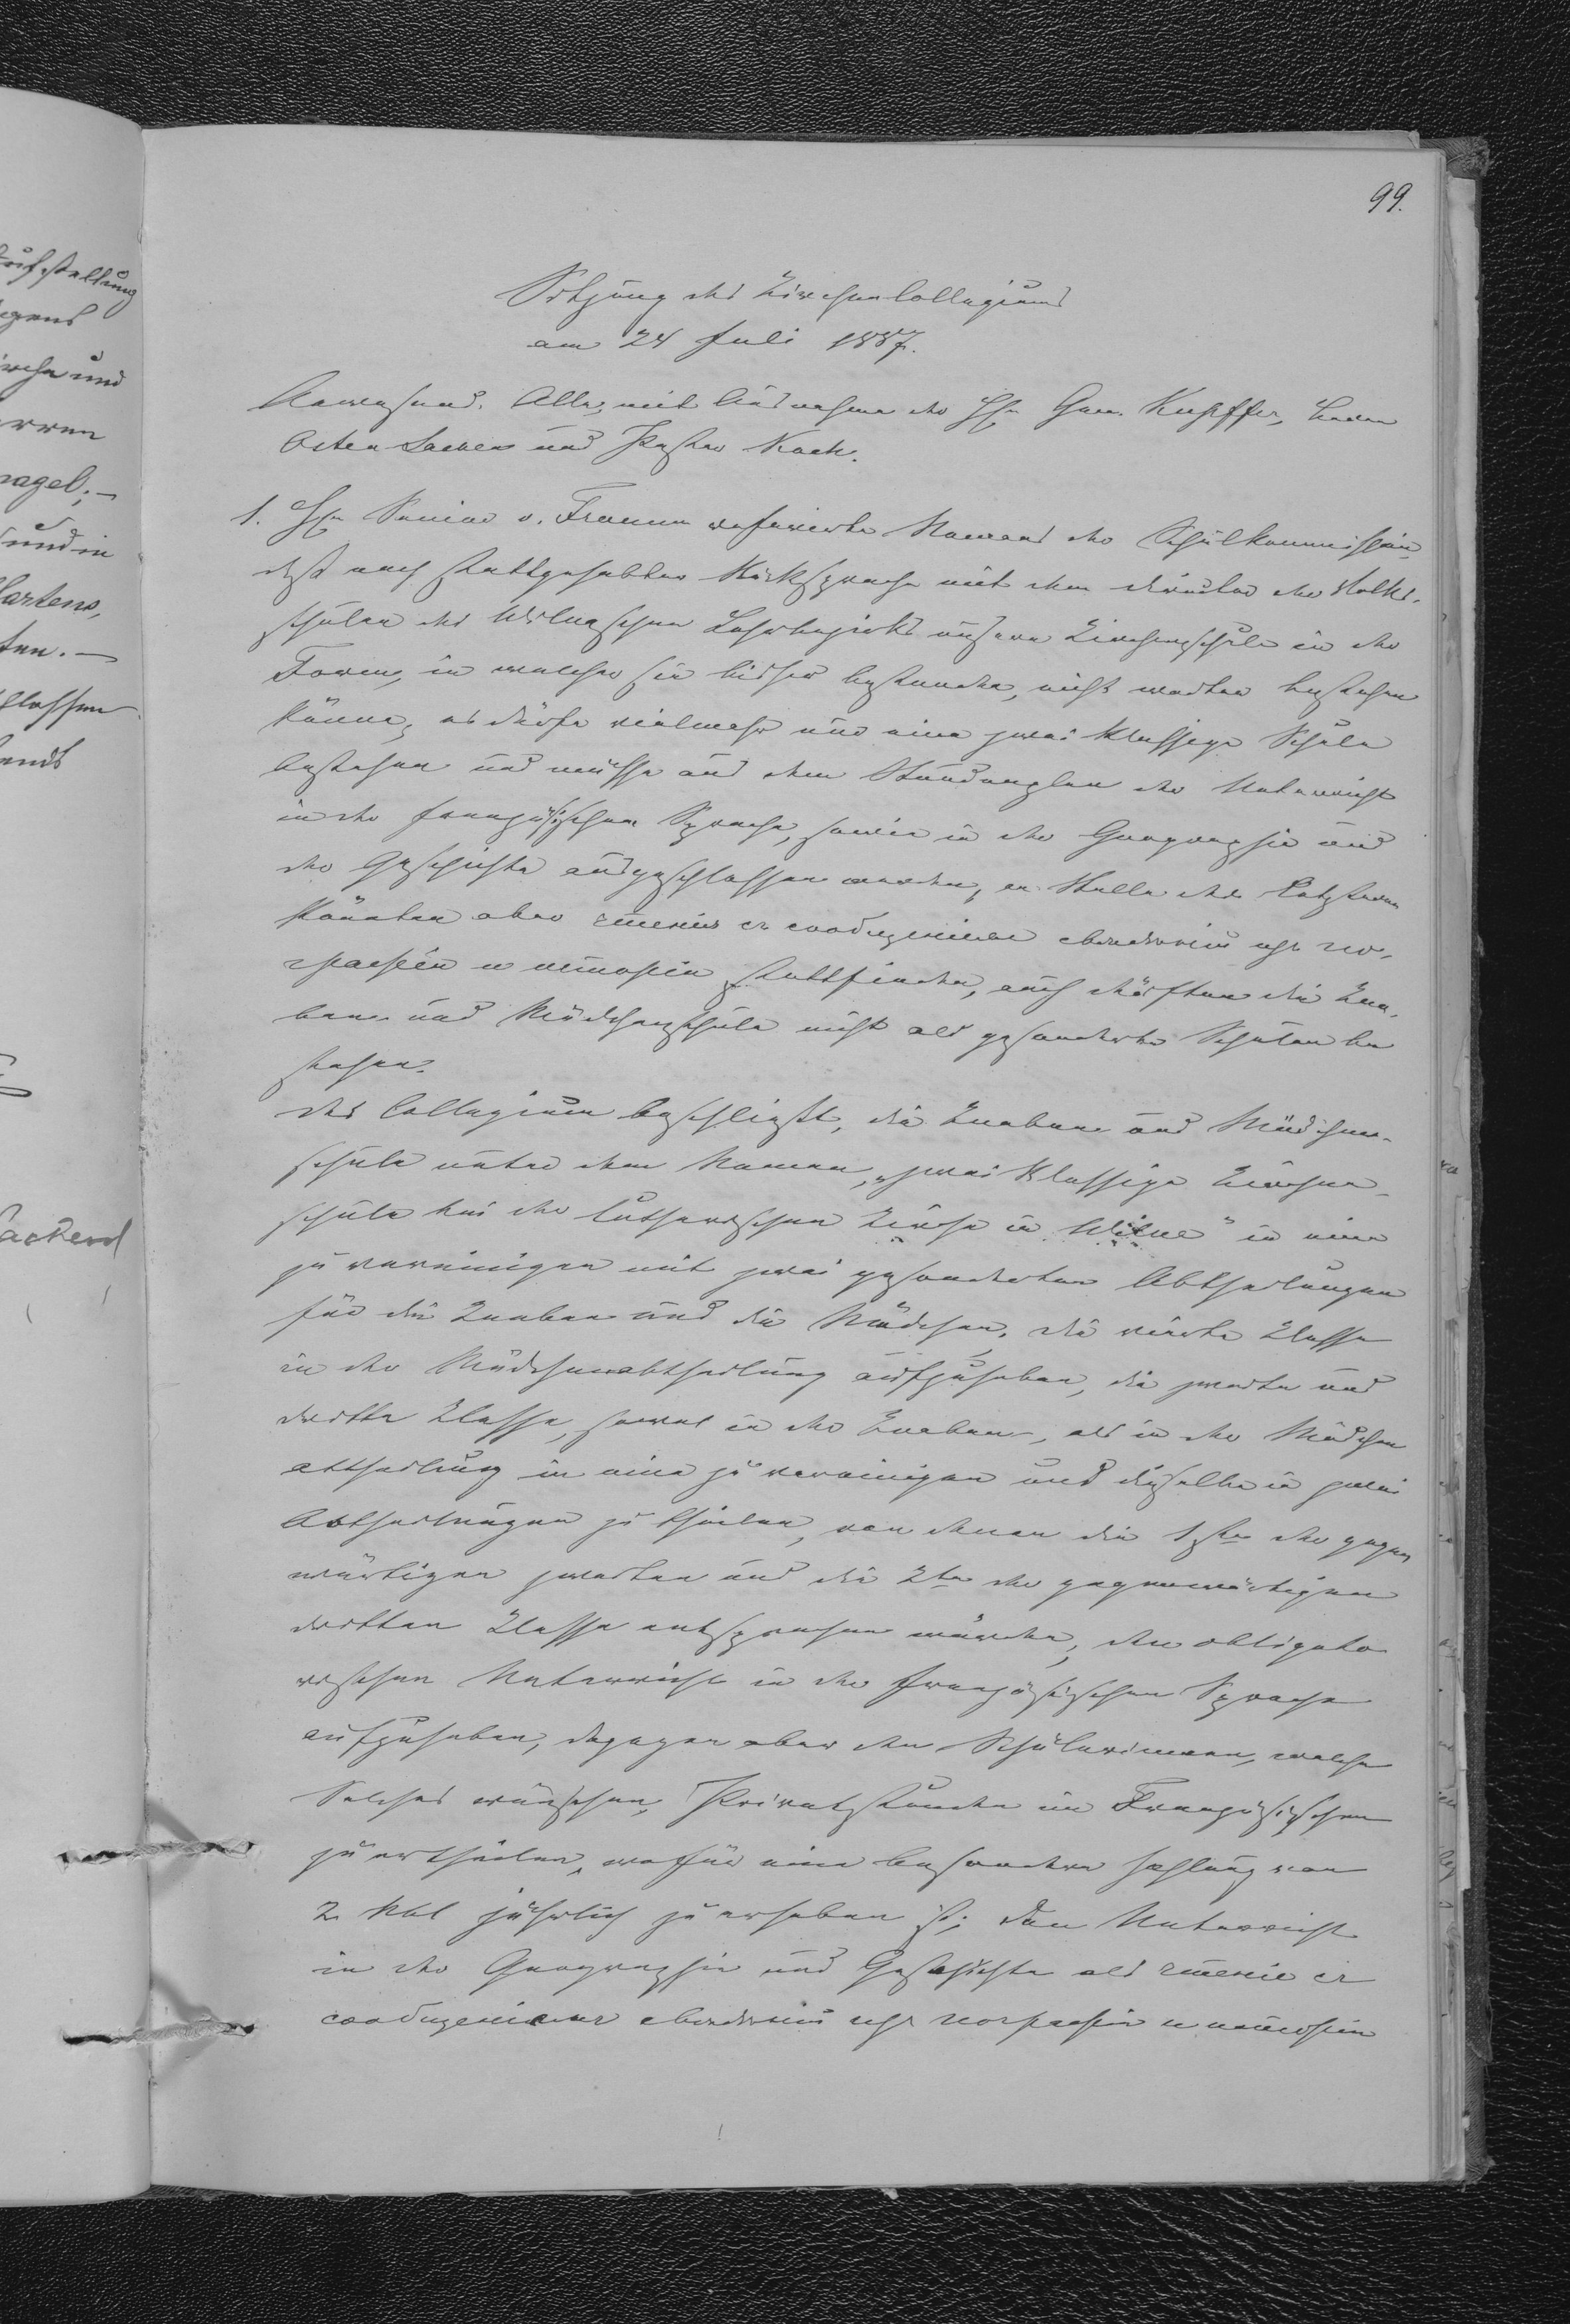 99.
Sitzung des Kirchencollegiums
am 24 Juli 1887.
Anwesend: Alle, mit Ausnahme der HHn Gen. Kupffer, Baron
Osten Sacken und Pastor Koch.
1. Hr Senior v. Fromm referierte Namens der Schulkommission,
daß nach stattgehabter Rücksprache mit dem Director der Volks-
schulen des Wilnaschen Lehrbezirks unsere Kirchenschule in der
Form, in welcher sie bisher bestanden, nicht weiter bestehen
könne, es dürfe vielmehr nur eine zwei klassige Schule
bestehen und müsse aus dem Stundenplan der Unterricht
in der französischen Sprache, sowie in der Geographie und
der Geschichte ausgeschlossen werden, an Stelle des Letzteren
könnten aber чтенія съ сообщеніемъ свѣдѣній изъ гео-
графіи и исторіи stattfinden, auch dürften die Kna-
ben- und Mädchenschule nicht als gesonderte Schulen be
stehen.
Das Collegium beschließt, die Knaben und Mädchen-
schule unter dem Namen „zwei klassige Kirchen-
schule bei der lutherischen Kirche in Wilna" in eine
zu vereinigen mit zwei gesonderten Abtheilungen
für die Knaben und die Mädchen, die vierte Klasse
in der Mädchenabtheilung aufzuheben, die zweite und
dritte Klasse, sowol in der Knaben-, als in der Mädchen
abtheilung in eine zu vereinigen und dieselbe in zwei
Abtheilungen zu theilen, von denen die 1ste der gegen
wärtigen zweiten und die 2te der gegenwärtigen
dritten Klasse entsprechen würde, den obligato
rischen Unterricht in der französischen Sprache
aufzuheben, dagegen aber den Schülerinnen, welche
Solches wünschen, Privatstunden im Französischen
zu ertheilen, wofür eine besondere Zahlung von
2 Rbl jährlich zu erheben ist; den Unterricht
in der Geographie und Geschichte als чтеніе съ
сообщеніемъ свѣдѣній изъ географіи и исторіи